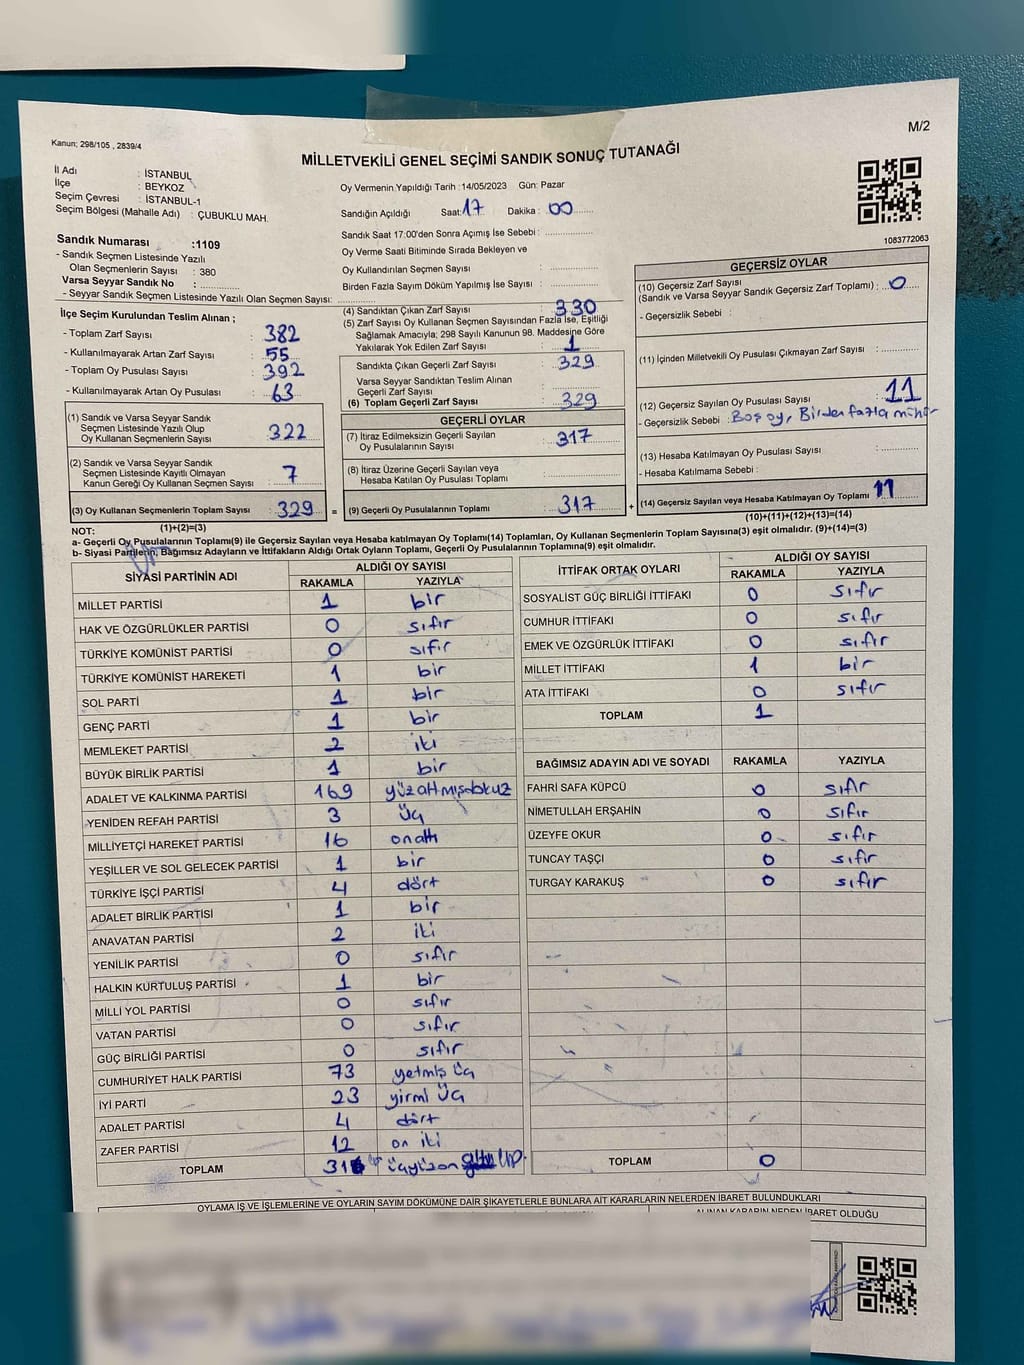 M/2
Kanun: 298/105 , 2839/4
MİLLETVEKİLİ GENEL SEÇİMİ SANDIK SONUÇ TUTANAĞI
İl Adı : İSTANBUL
İlçe : BEYKOZ
Seçim Çevresi : İSTANBUL-1
Seçim Bölgesi (Mahalle Adı) : ÇUBUKLU MAH.
Oy Vermenin Yapıldığı Tarih :14/05/2023 Gün: Pazar
Sandığın Açıldığı Saat: 17 Dakika : 00
Sandık Saat 17:00'den Sonra Açımış İse Sebebi :
Oy Verme Saati Bitiminde Sırada Bekleyen ve
Oy Kullandırılan Seçmen Sayısı :
Birden Fazla Sayım Döküm Yapılmış İse Sayısı :
1083772063
Sandık Numarası :1109
- Sandık Seçmen Listesinde Yazılı
Olan Seçmenlerin Sayısı : 380
Varsa Seyyar Sandık No :
- Seyyar Sandık Seçmen Listesinde Yazılı Olan Seçmen Sayısı:
İlçe Seçim Kurulundan Teslim Alınan ;
- Toplam Zarf Sayısı : 382
- Kullanılmayarak Artan Zarf Sayısı : 55
- Toplam Oy Pusulası Sayısı : 392
- Kullanılmayarak Artan Oy Pusulası : 63
(1) Sandık ve Varsa Seyyar Sandık
Seçmen Listesinde Yazılı Olup
Oy Kullanan Seçmenlerin Sayısı : 322
(2) Sandık ve Varsa Seyyar Sandık
Seçmen Listesinde Kayıtlı Olmayan
Kanun Gereği Oy Kullanan Seçmen Sayısı : 7
(3) Oy Kullanan Seçmenlerin Toplam Sayısı : 329 =
(1)+(2)=(3)
(4) Sandıktan Çıkan Zarf Sayısı : 330
(5) Zarf Sayısı Oy Kullanan Seçmen Sayısından Fazla İse, Eşitliği
Sağlamak Amacıyla; 298 Sayılı Kanunun 98. Maddesine Göre
Yakılarak Yok Edilen Zarf Sayısı : 1
Sandıkta Çıkan Geçerli Zarf Sayısı : 329
Varsa Seyyar Sandıktan Teslim Alınan
Geçerli Zarf Sayısı :
(6) Toplam Geçerli Zarf Sayısı : 329
GEÇERLİ OYLAR
(7) İtiraz Edilmeksizin Geçerli Sayılan
Oy Pusulalarının Sayısı : 317
(8) İtiraz Üzerine Geçerli Sayılan veya
Hesaba Katılan Oy Pusulası Toplamı :
(9) Geçerli Oy Pusulalarının Toplamı : 317 +
GEÇERSİZ OYLAR
(10) Geçersiz Zarf Sayısı
(Sandık ve Varsa Seyyar Sandık Geçersiz Zarf Toplamı) : 0
- Geçersizlik Sebebi :
(11) İçinden Milletvekili Oy Pusulası Çıkmayan Zarf Sayısı :
(12) Geçersiz Sayılan Oy Pusulası Sayısı : 11
- Geçersizlik Sebebi : Boş oy, Birden fazla mühür
(13) Hesaba Katılmayan Oy Pusulası Sayısı :
- Hesaba Katılmama Sebebi :
(14) Geçersiz Sayılan veya Hesaba Katılmayan Oy Toplamı 11
(10)+(11)+(12)+(13)=(14)
NOT:
a- Geçerli Oy Pusulalarının Toplamı(9) ile Geçersiz Sayılan veya Hesaba katılmayan Oy Toplamı(14) Toplamları, Oy Kullanan Seçmenlerin Toplam Sayısına(3) eşit olmalıdır. (9)+(14)=(3)
b- Siyasi Partilerin, Bağımsız Adayların ve İttifakların Aldığı Ortak Oyların Toplamı, Geçerli Oy Pusulalarının Toplamına(9) eşit olmalıdır.
SİYASİ PARTİNİN ADI ALDIĞI OY SAYISI
RAKAMLA YAZIYLA
MİLLET PARTİSİ 1 bir
HAK VE ÖZGÜRLÜKLER PARTİSİ 0 sıfır
TÜRKİYE KOMÜNİST PARTİSİ 0 sıfır
TÜRKİYE KOMÜNİST HAREKETİ 1 bir
SOL PARTİ 1 bir
GENÇ PARTİ 1 bir
MEMLEKET PARTİSİ 2 iki
BÜYÜK BİRLİK PARTİSİ 1 bir
ADALET VE KALKINMA PARTİSİ 169 yüzaltmışdokuz
YENİDEN REFAH PARTİSİ 3 üç
MİLLİYETÇİ HAREKET PARTİSİ 16 onaltı
YEŞİLLER VE SOL GELECEK PARTİSİ 1 bir
TÜRKİYE İŞÇİ PARTİSİ 4 dört
ADALET BİRLİK PARTİSİ 1 bir
ANAVATAN PARTİSİ 2 iki
YENİLİK PARTİSİ 0 sıfır
HALKIN KURTULUŞ PARTİSİ 1 bir
MİLLİ YOL PARTİSİ 0 sıfır
VATAN PARTİSİ 0 sıfır
GÜÇ BİRLİĞİ PARTİSİ 0 sıfır
CUMHURİYET HALK PARTİSİ 73 yetmiş üç
İYİ PARTİ 23 yirmi üç
ADALET PARTİSİ 4 dört
ZAFER PARTİSİ 12 on iki
TOPLAM üçyüzon
İTTİFAK ORTAK OYLARI ALDIĞI OY SAYISI
RAKAMLA YAZIYLA
SOSYALİST GÜÇ BİRLİĞİ İTTİFAKI 0 sıfır
CUMHUR İTTİFAKI 0 sıfır
EMEK VE ÖZGÜRLÜK İTTİFAKI 0 sıfır
MİLLET İTTİFAKI 1 bir
ATA İTTİFAKI 0 sıfır
TOPLAM 1
BAĞIMSIZ ADAYIN ADI VE SOYADI RAKAMLA YAZIYLA
FAHRİ SAFA KÜPCÜ 0 sıfır
NİMETULLAH ERŞAHİN 0 sıfır
ÜZEYFE OKUR 0 sıfır
TUNCAY TAŞÇI 0 sıfır
TURGAY KARAKUŞ 0 sıfır
TOPLAM 0
OYLAMA İŞ VE İŞLEMLERİNE VE OYLARIN SAYIM DÖKÜMÜNE DAİR ŞİKAYETLERLE BUNLARA AİT KARARLARIN NELERDEN İBARET BULUNDUKLARI
ALINAN KARARIN NEDEN İBARET OLDUĞU